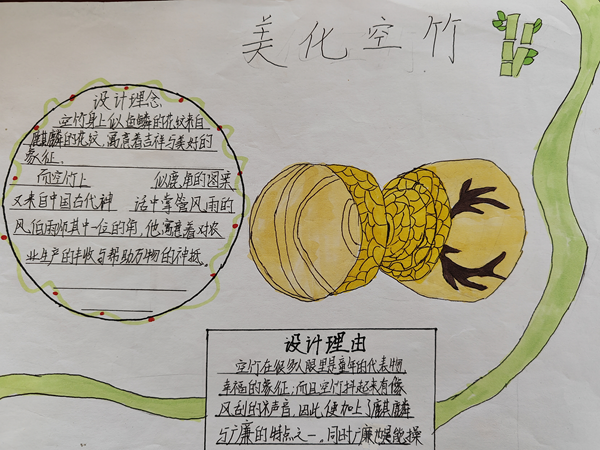 美化空竹
设计理念
空竹身上似鱼鳞的花纹来自
麒麟的花纹,寓意着吉祥与美好的
象征。
而空竹上 似鹿角的图案
又来自中国古代神 话中掌管风雨的
风伯雨师其中一位的角,他寓意着对农
业生产的丰收与帮助万物的神抵。
设计理由
空竹在很多人眼里是童年的代表物
幸福的象征;而且空竹抖起来有像
风刮的声音,因此,便加上了麒麟
与广廉的特点之一。同时广廉也是能操